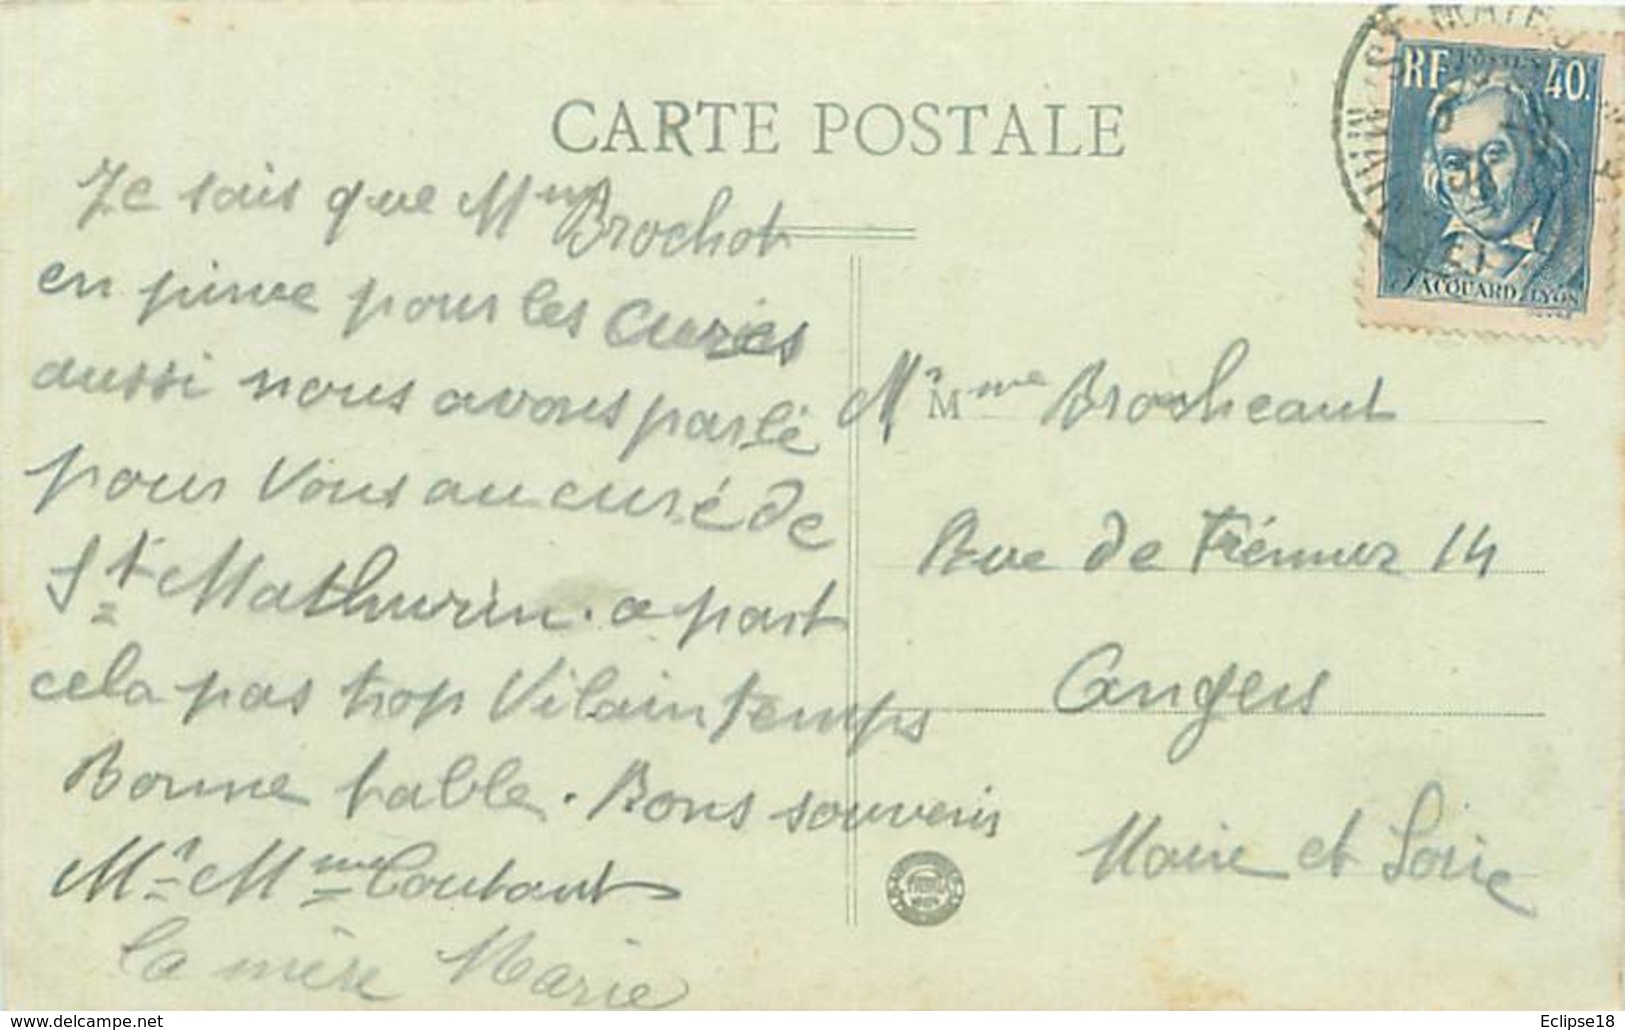 CARTE POSTALE
RF POSTES 40.
JACQUARD. LYON
Je sais que Mme Brochot
en pince pour les curés
aussi nous avons parlé
pour Vous au curé de
St Mathurin. a part
cela pas trop Vilain temps
Bonne table. Bons souvenirs
Mr. Mme Coutant
la mère Marie
Mr Mme Brocheaut
M
Rue de Frémur 14
Angers
Maine et Loire
delcampe.net
Eclipse18